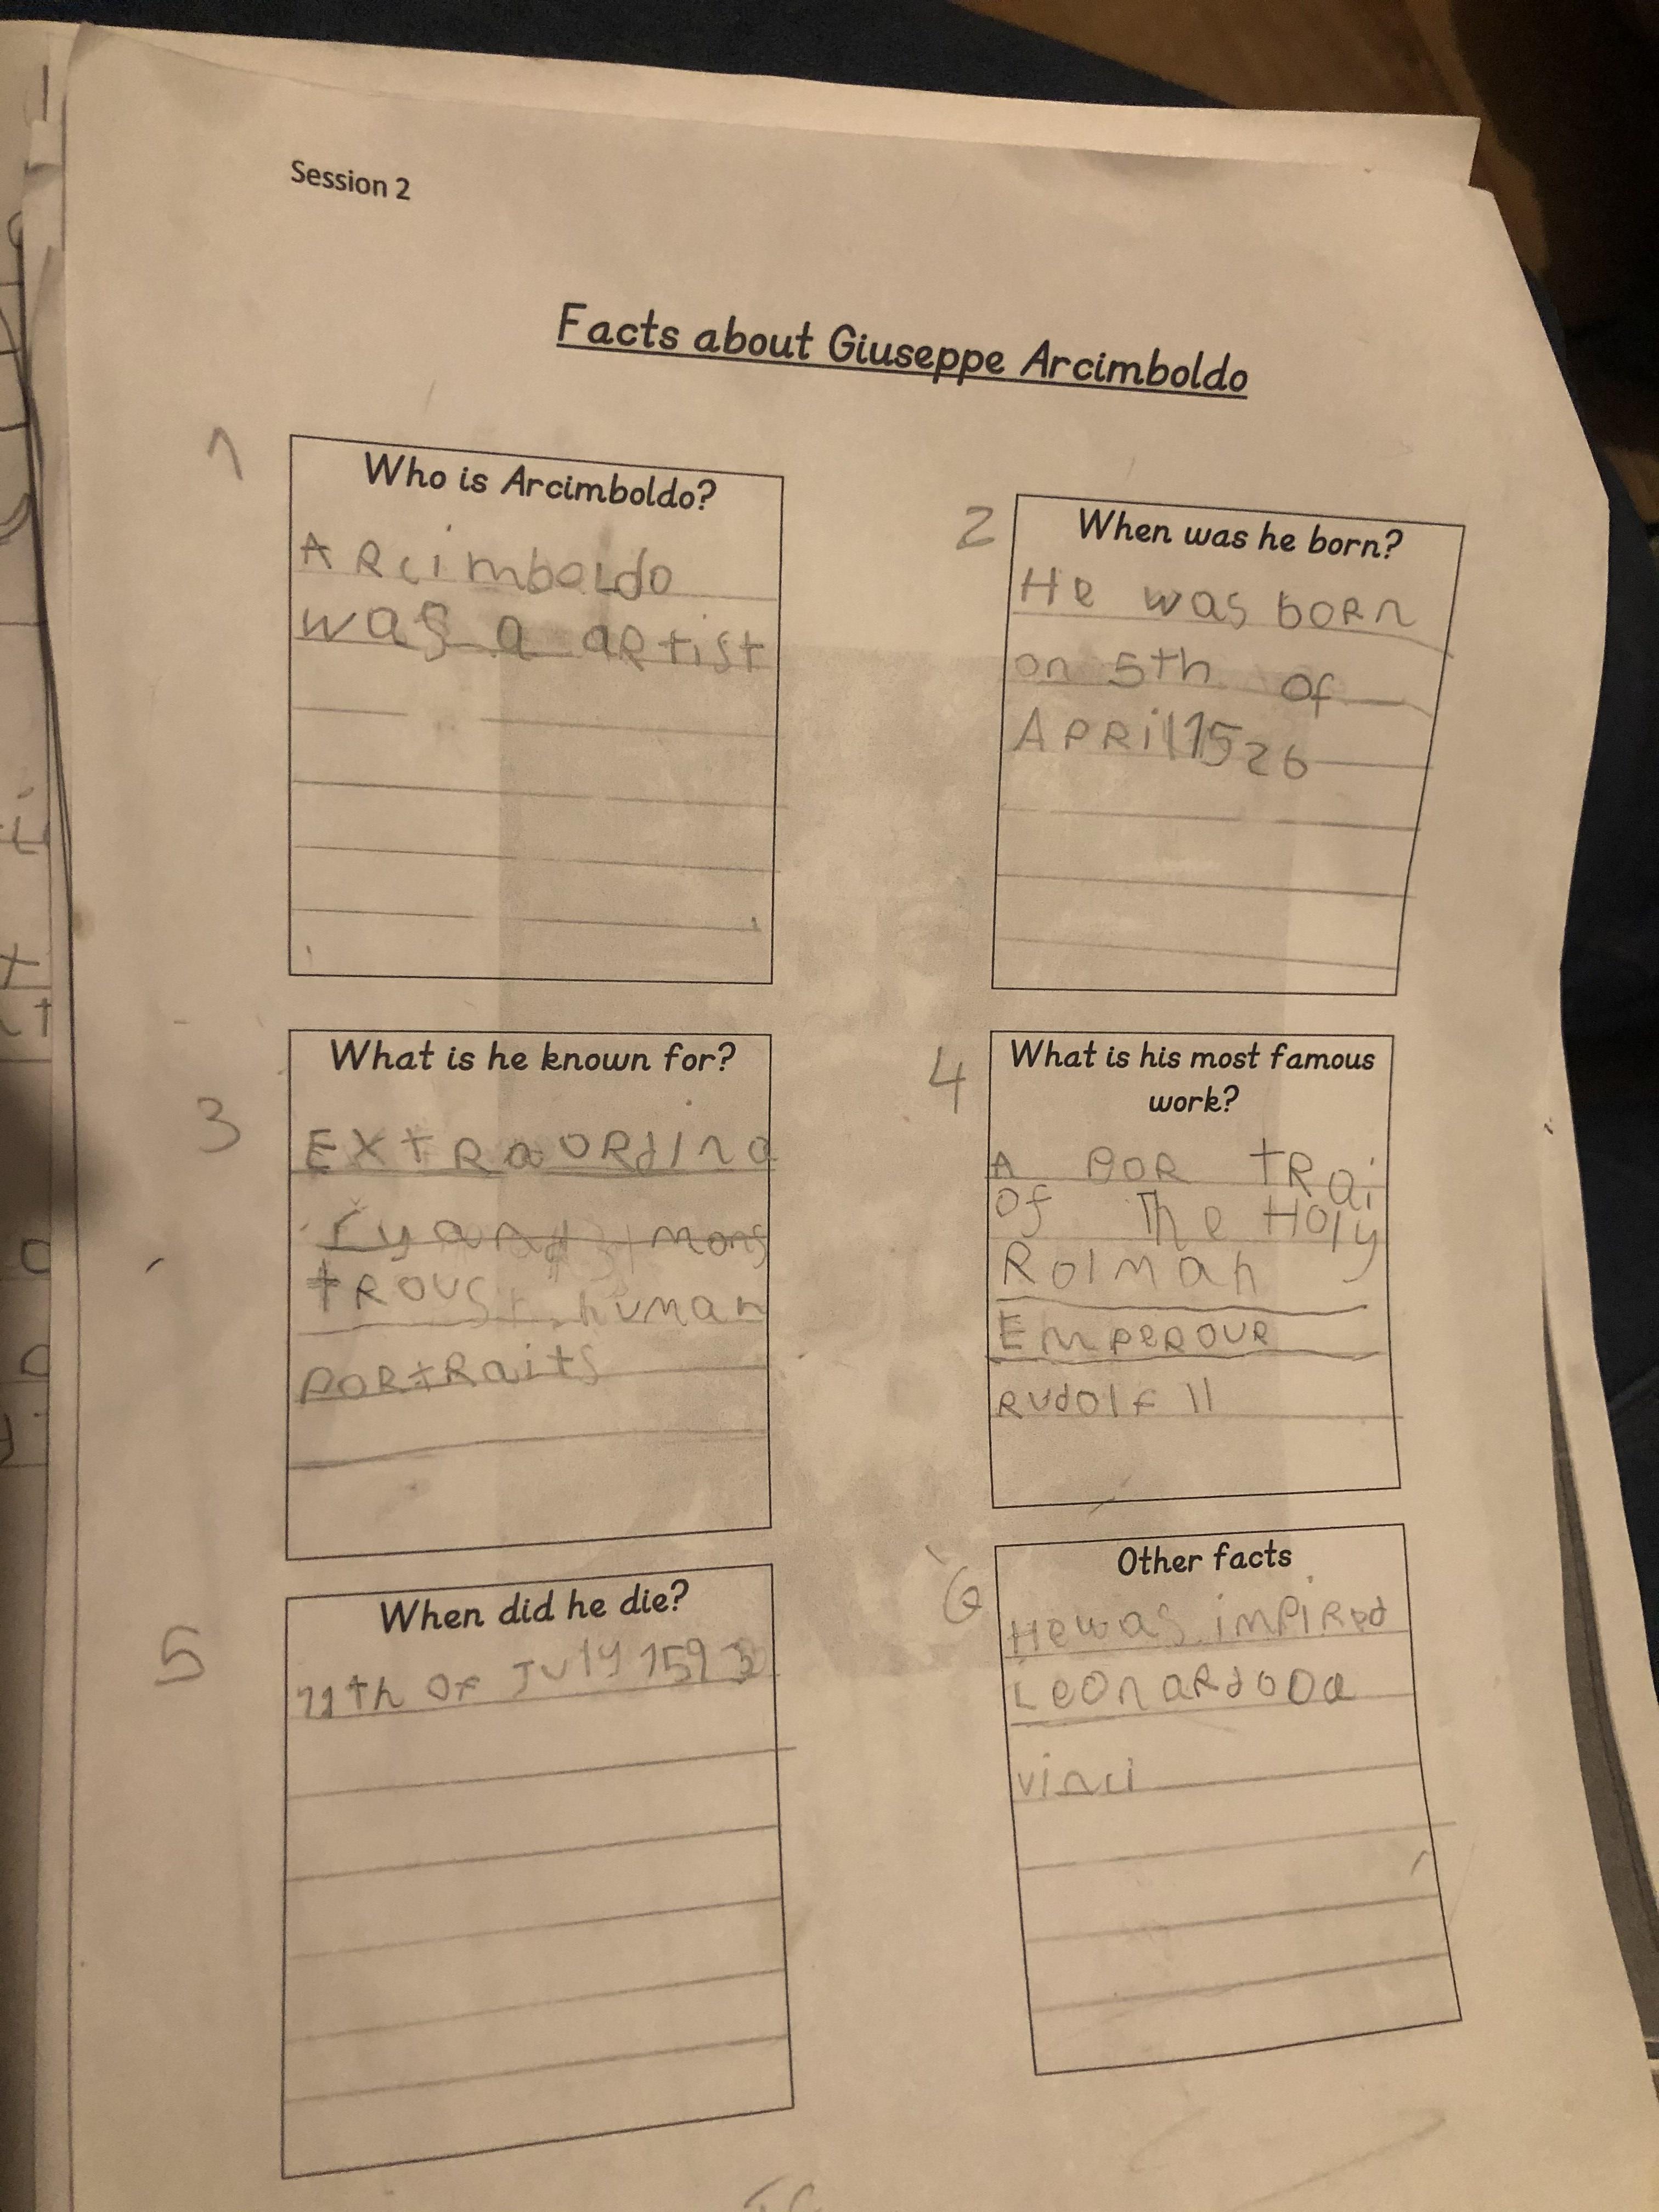 Session 2
Facts about Giuseppe Arcimboldo
1
Who is Arcimboldo?
ARcimboLdo
was a aRtist
2
When was he born?
He was boRn
on 5th of
APRil 1526
3
What is he known for?
ExtRaoRdina
ry and mons
tRous human
poRtRaits
4
What is his most famous
work?
A poR tRai
of The Holy
Rolman
EmpeRouR
Rudolf II
5
When did he die?
11th of July 1593
6
Other facts
He was impiRed
LeonaRdo Da
vinci